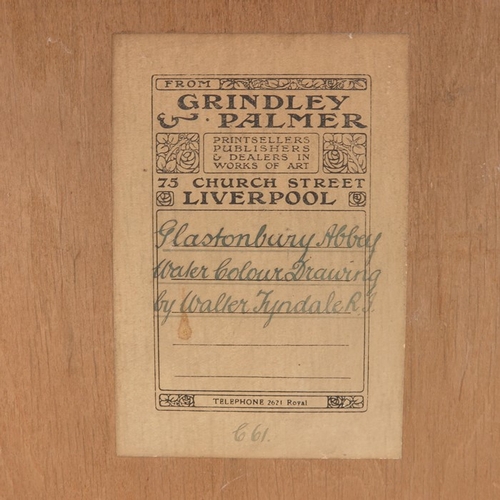 FROM
GRINDLEY
& · PALMER
PRINTSELLERS
PUBLISHERS
& DEALERS IN
WORKS OF ART
75 CHURCH STREET
LIVERPOOL
Glastonbury Abbey
Water Colour Drawing
by Walter Tyndale R.I.
TELEPHONE 2621 Royal
C61.